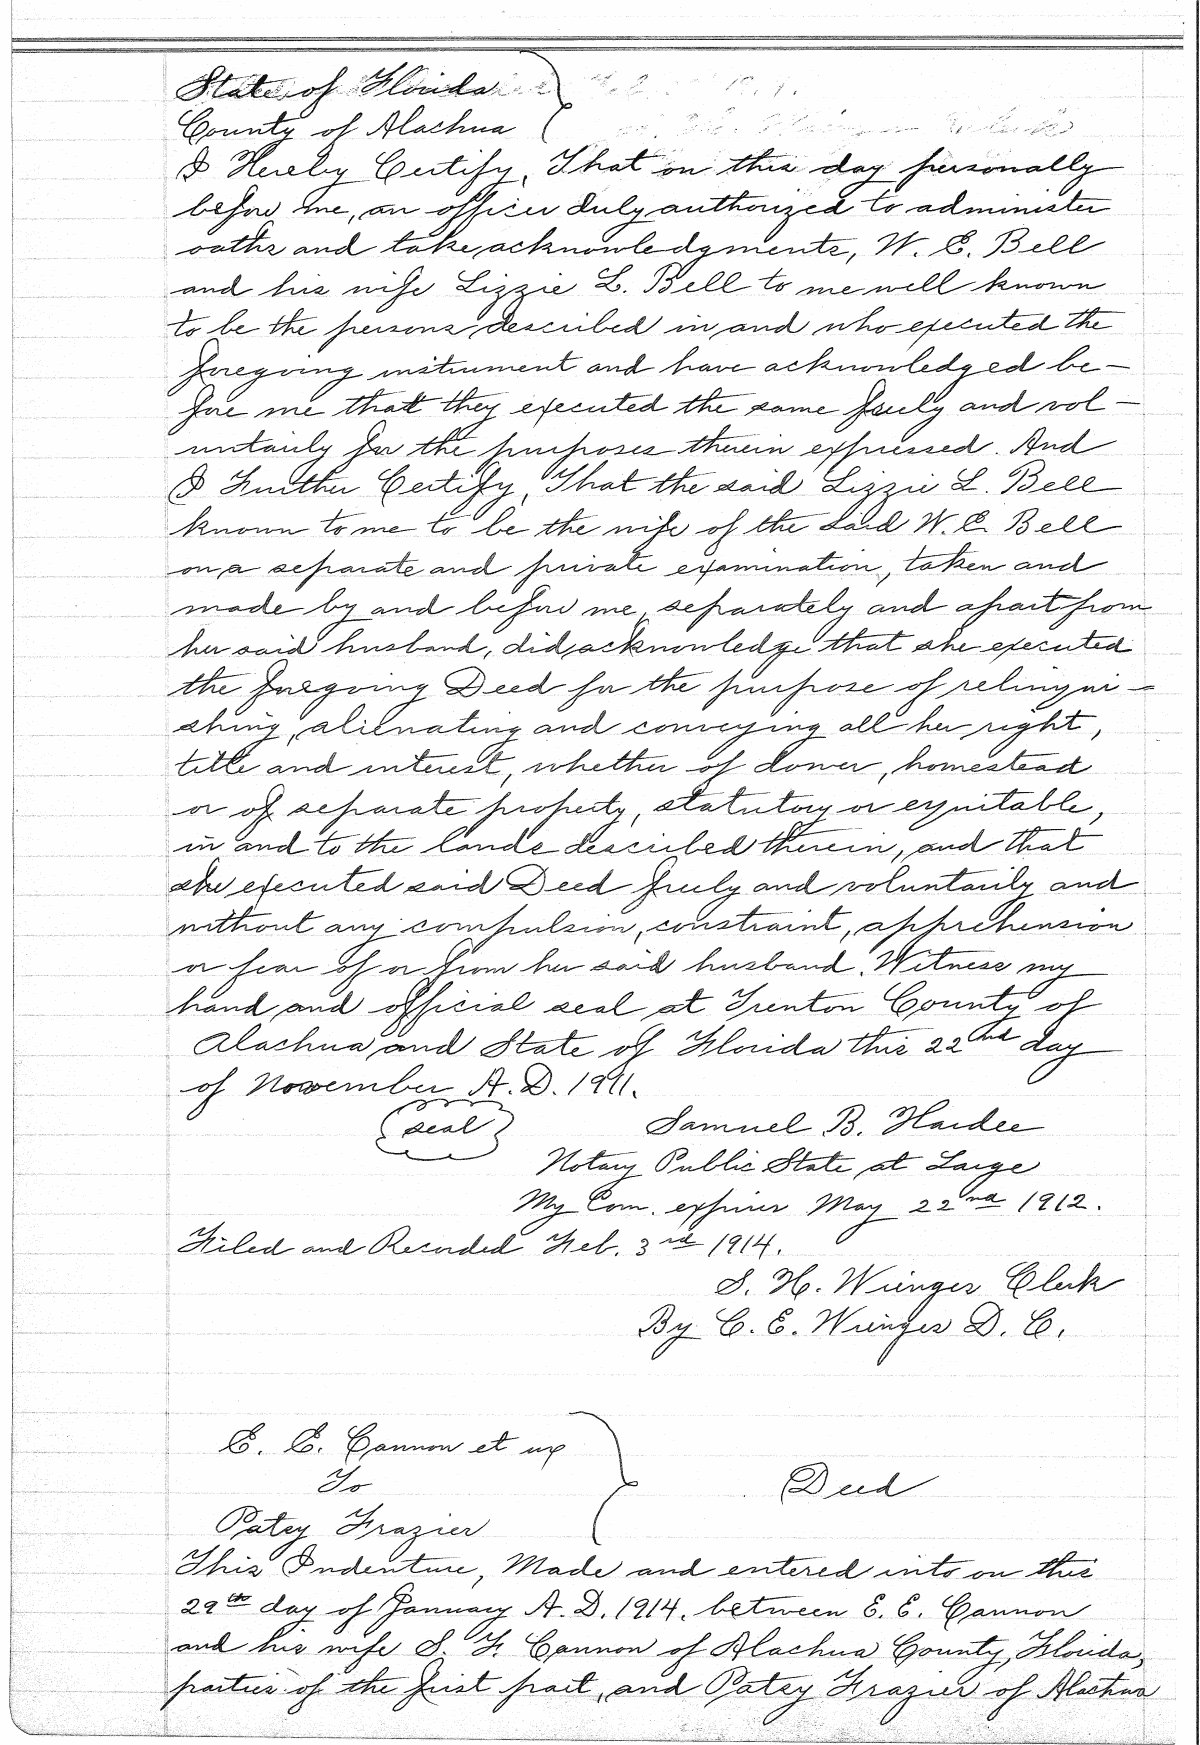 State of Florida
County of Alachua
I Hereby Certify, That on this day personally
before me, an officer duly authorized to administer
oaths and take acknowledgments, W. E. Bell
and his wife Lizzie L. Bell to me well known
to be the persons described in and who executed the
foregoing instrument and have acknowledged be-
fore me that they executed the same freely and vol-
untarily for the purposes therein expressed. And
I Further Certify, That the said Lizzie L. Bell
known to me to be the wife of the said W. E. Bell
on a separate and private examination, taken and
made by and before me, separately and apart from
her said husband, did acknowledge that she executed
the foregoing Deed for the purpose of relinqui-
shing, alienating and conveying all her right,
title and interest, whether of dower, homestead
or of separate property, statutory or equitable,
in and to the lands described therein, and that
she executed said Deed freely and voluntarily and
without any compulsion, constraint, apprehension
or fear of or from her said husband. Witness my
hand and official seal at Trenton County of
Alachua and State of Florida this 22nd day
of November A. D. 1911.
seal
Samuel B. Hardee
Notary Public State at Large
My Com. expires May 22nd 1912.
Filed and Recorded Feb. 3rd 1914.
S. H. Wienges Clerk
By C. E. Wienges D. C.
E. E. Cannon et ux
To
Deed
Patsy Frazier
This Indenture, Made and entered into on this
29th day of January A. D. 1914. between E. E. Cannon
and his wife S. F. Cannon of Alachua County, Florida,
parties of the first part, and Patsy Frazier of Alachua